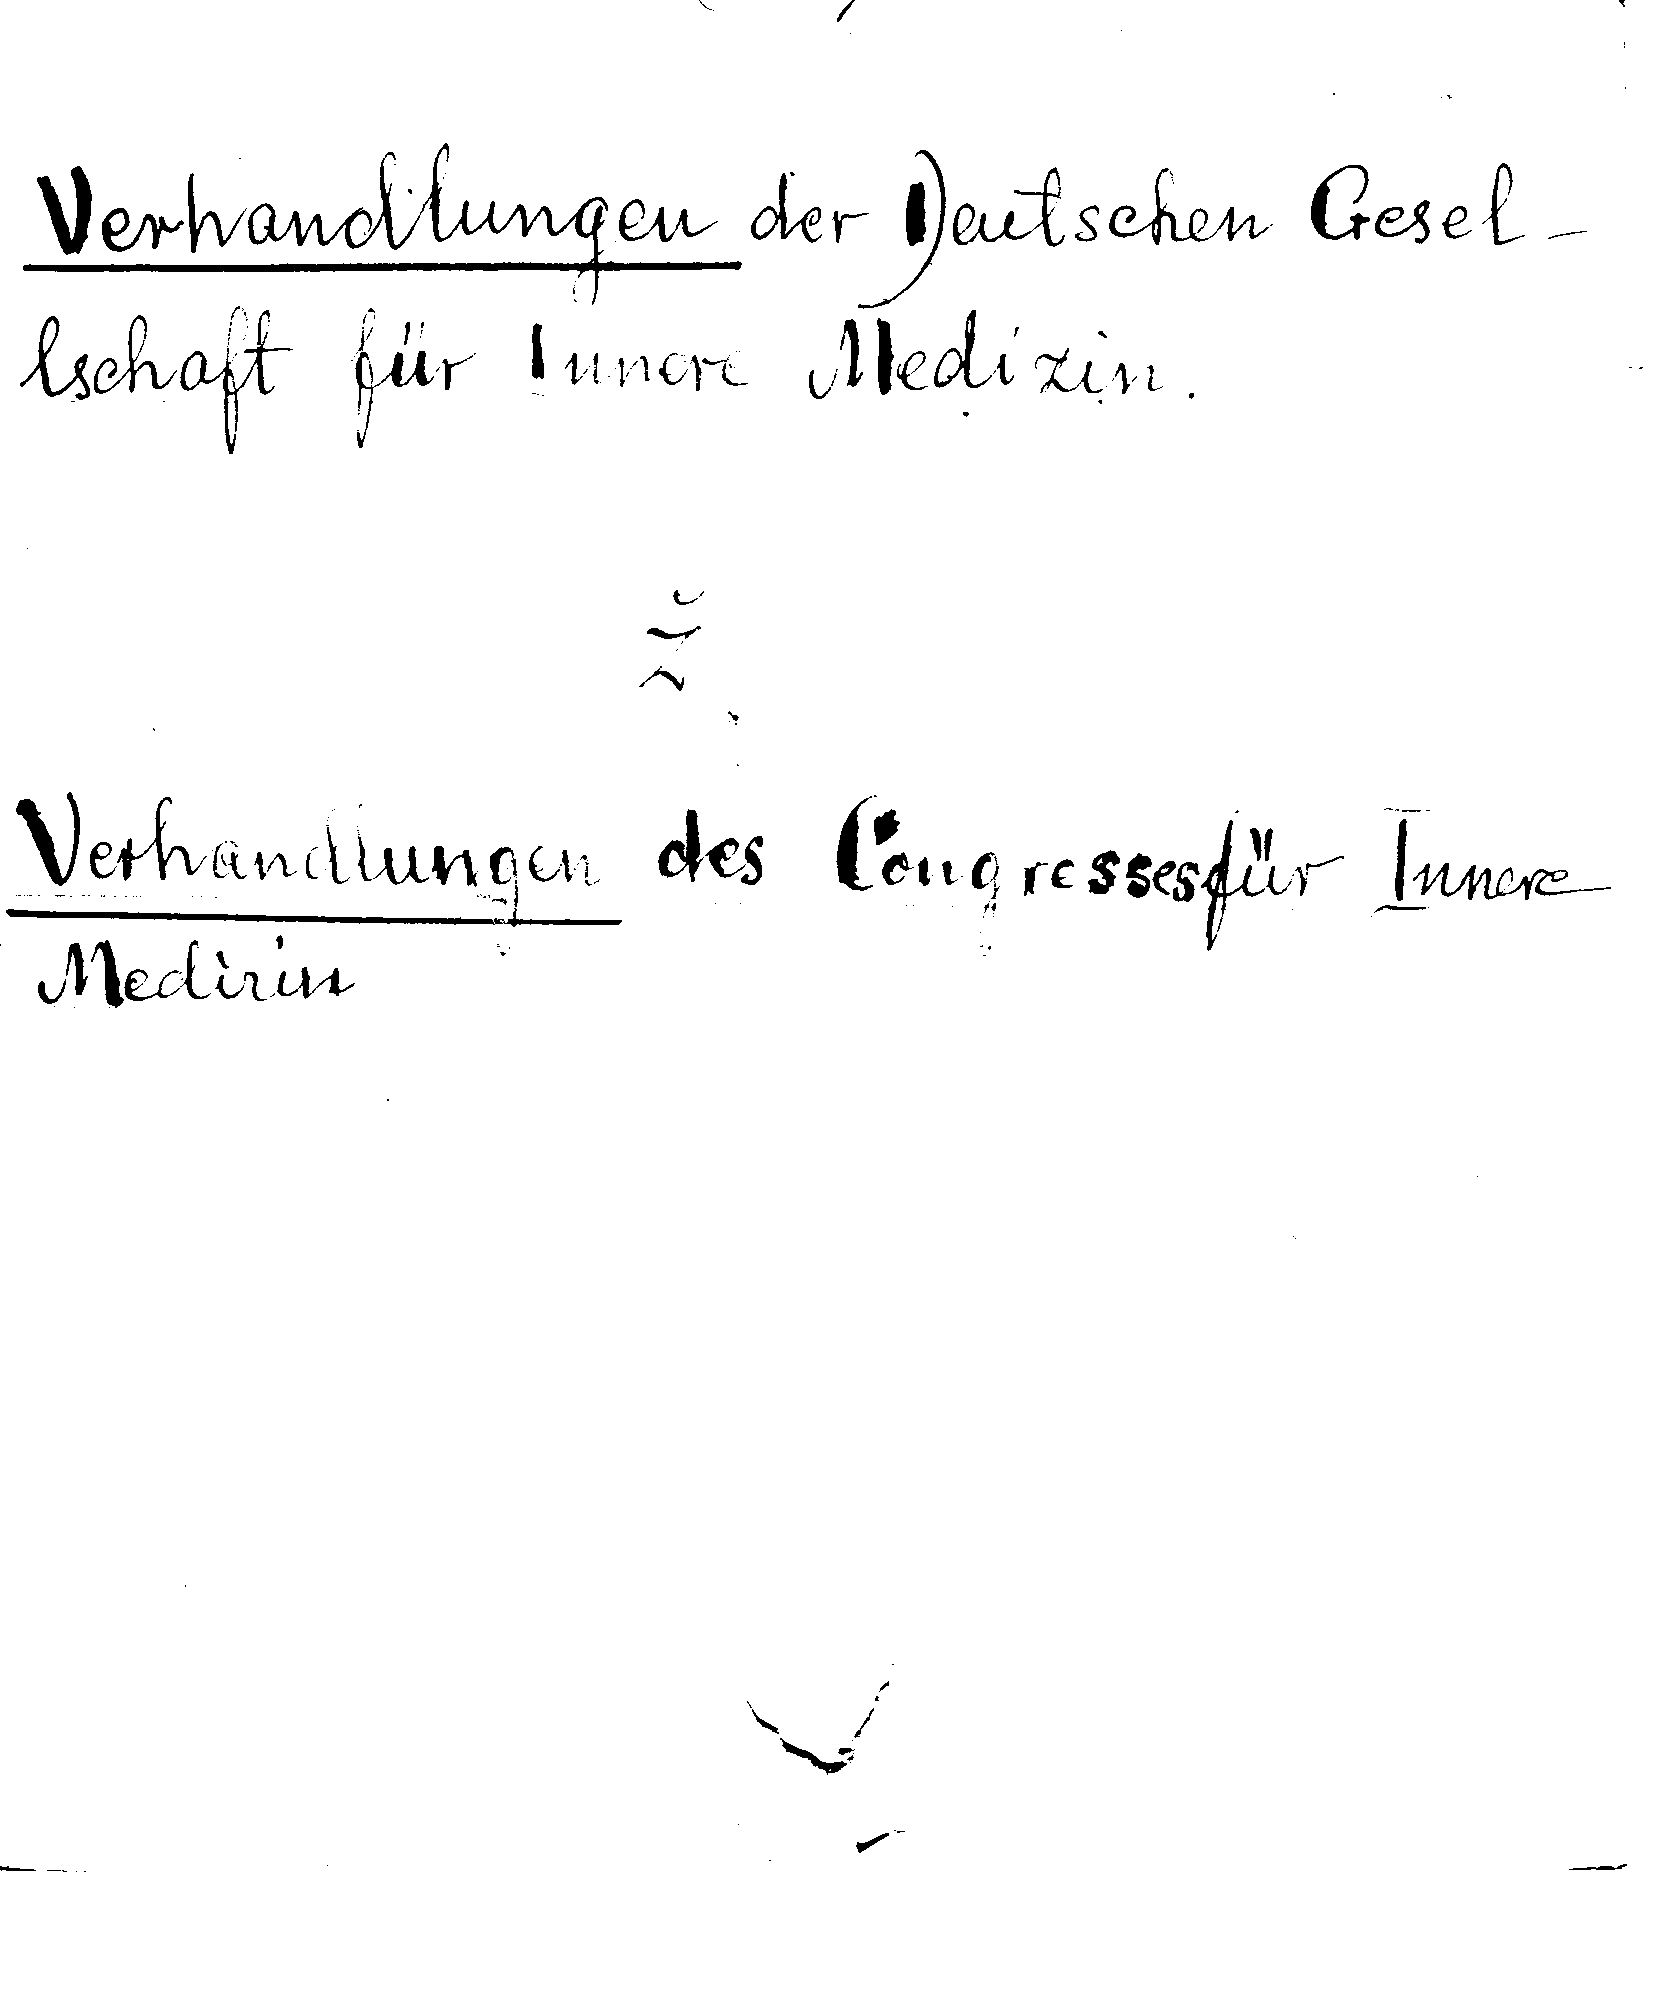 Verhandlungen der Deutschen Gesel-
lschaft für Innere Medizin.
Verhandlungen des Congresses für Innere
Medizin